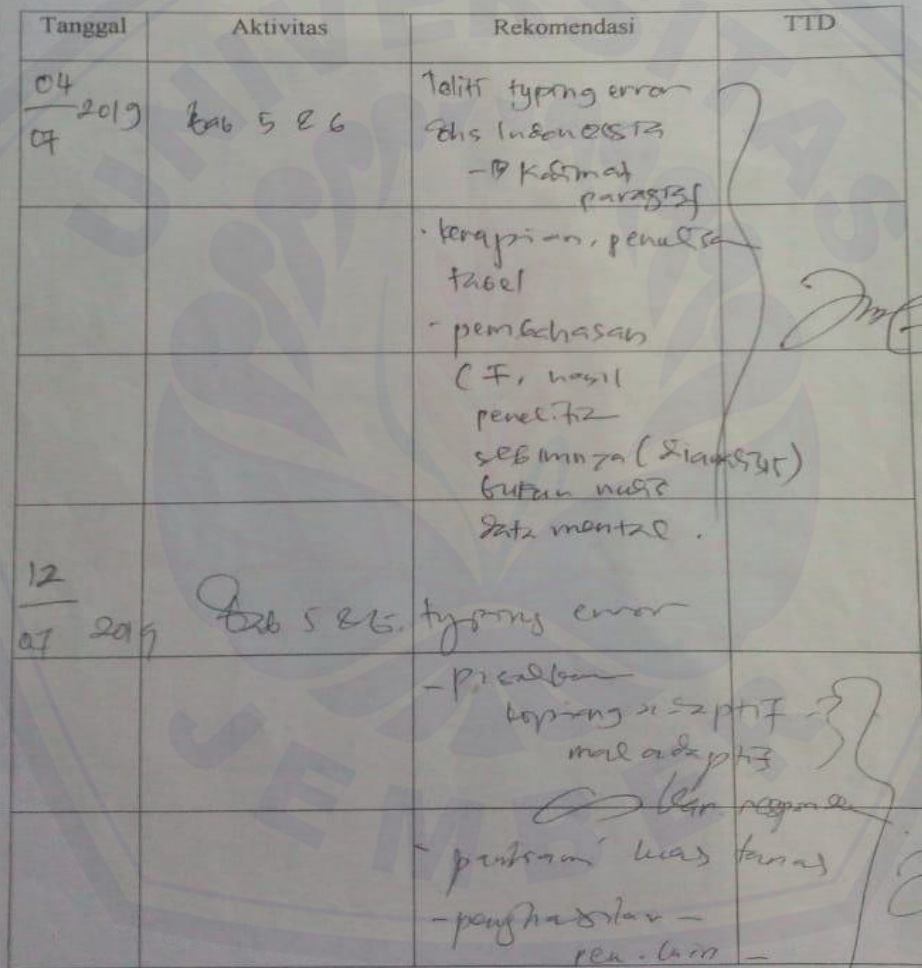 Tanggal Aktivitas Rekomendasi TTD
04/07 2019 Bab 5 & 6 Teliti typing error
Bhs Indonesia
→ Kalimat
paragraf
- kerapian, penulisan
tabel
- pembahasan
(F, hasil
penelitian
sebelumnya
bukan
data mental.
12/07 2019 Bab 5 & 6. typing error
- pisahkan
koping adaptif
mal adaptif
luas
- penghasilan -
UNIVERSITAS
JEMBER